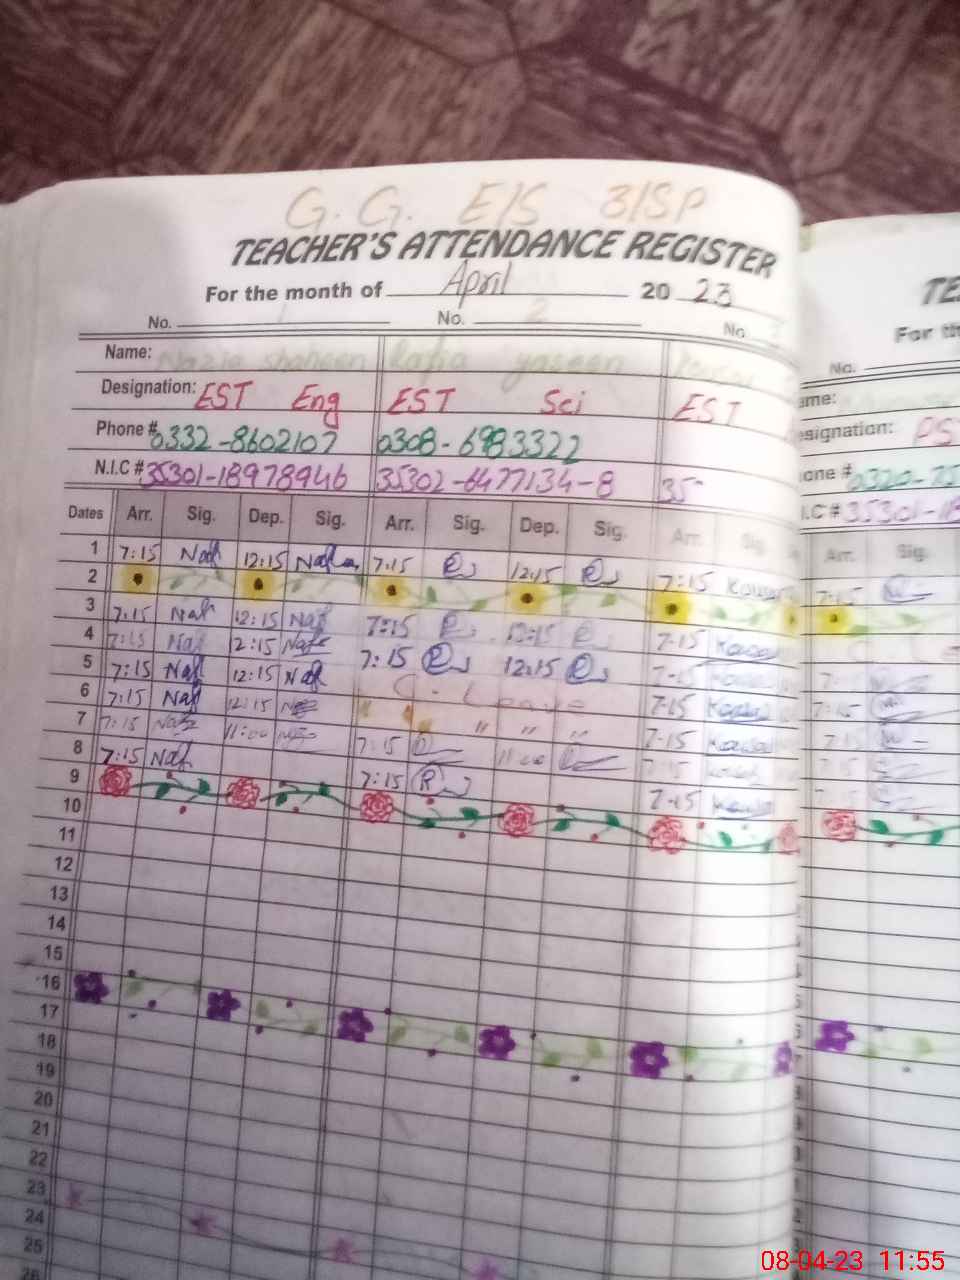 G. G. E/S 31SP
TEACHER'S ATTENDANCE REGISTER
For the month of April 20 23
No. 1 No. 2 No.
Name: Nazia shaheen Rafia yaseen
Designation: EST Eng EST Sci EST
Phone # 0332-8602107 0308-6983322
N.I.C # 35301-18978946 35302-6477134-8 35
Dates Arr. Sig. Dep. Sig. Arr. Sig. Dep. Sig. Arr. Sig.
1 7:15 12:15 7:15 12:15 7:15
2
3 7:15 12:15 7:15 12:15 7-15
4 7:15 12:15 7:15 12:15 7-15
5 7:15 12:15 C - Leave 7-15
6 7:15 12:15 " " " " 7-15
7 7:15 11:00 7:15 11:00 7:15
8 7:15 7:15 7-15
9
10
11
12
13
14
15
16
17
18
19
20
21
22
23
24
25
26
TE
For th
No.
ame:
esignation: PS
one # 0320-75
I.C # 35301-18
Arr. Sig.
7:15
7:15
7:15
7:15
7:15
08-04-23 11:55